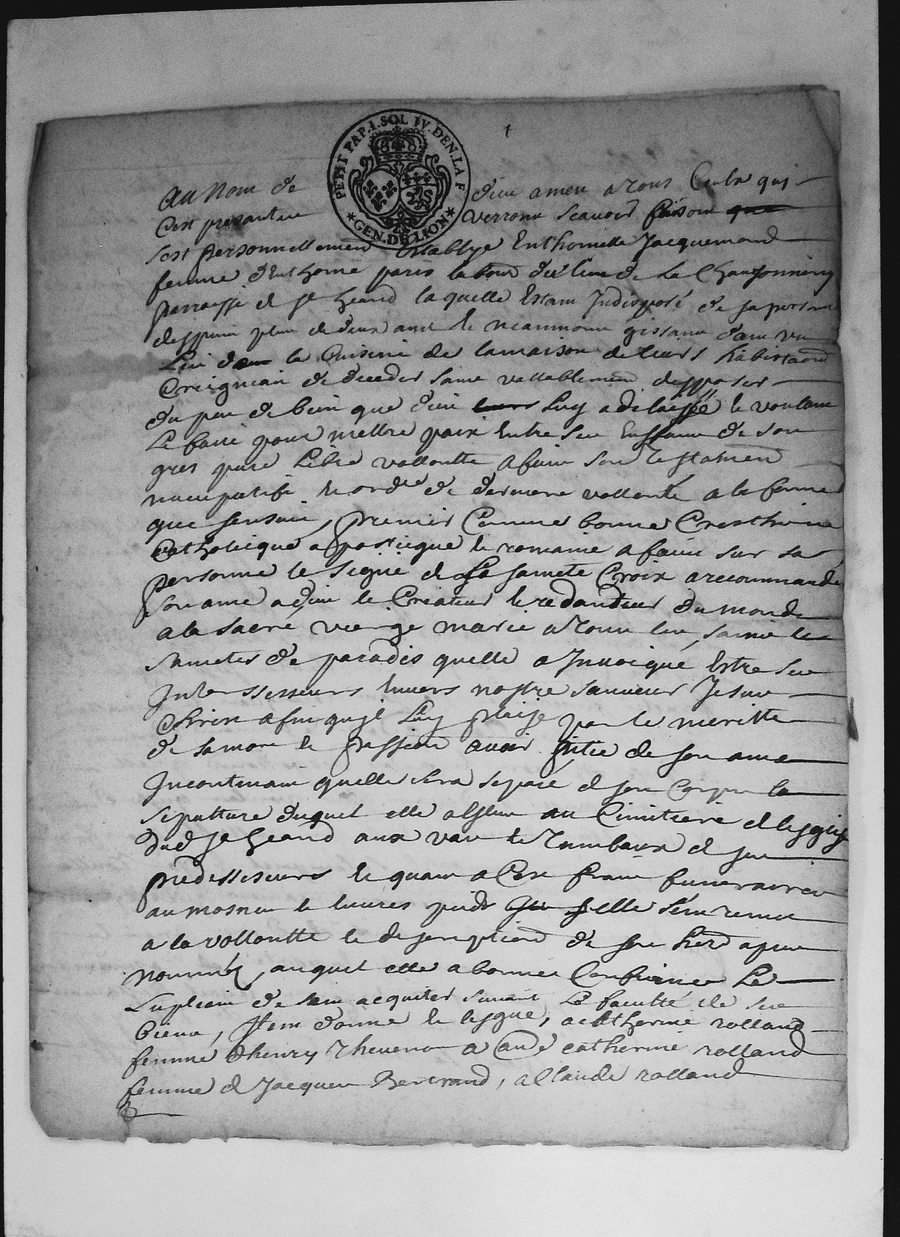 PETIT PAP. 1. SOL IV. DEN. LA F
GEN. DE LION
1
Au Nom de dieu amen a tous Ceulx qui
Ces presantes verront scavoir faisons que
sest personnellement establye Enthoinette Jacquemond
femme d'Enthoine paris du lieu de La
parroisse de St heand laquelle Estant Indisposé de sa personne
despuis plus de deux ans et neanmoins gisante dans un
Lit dans la Cuisine de la maison de leurs habitations
Creignant de decedes sans vallablement dispposer
du peu de bien que dieu Luy a delaisse et voulant
Le faire pour mettre paix Entre ses Enffans de son
gres pure Libre vollontte a fait son testament
nuncupatifz et ordre de derniere vollonté a la forme
que sensuit, premier Comme bonne Cresthiene
Catholicque apposticque et romaine a faict sur sa
personne le signe de La sainte Croix a recommandé
son ame a dieu le Createur et redanteur du monde
a la sacré vierge marie a tous les saints et
saintes de paradis quelle a Invoique Estre ses
Intersesseurs Envers nostre sauveur Jesus
Christ afin quil Luy plaise par le meritte
de sa mort et passion avoir pitie de son ame
Incontenant quelle sera separe de son Corps la
sepulture duquel elle aeslleu au Cimitiere de leglize
dud St heand aux vas et Tombaux de ses
predessesseurs et quant a Ces frais funerairres
aumosnes et luures pieds elle sen remet
a la vollontte et discreption de son herd apres
nommés, auquel elle a bonnes Confience Le
supliant de sen acquiter suivant La faculté de ses
biens, Item donne et legue, a Catherine rolland
femme d henry Thevenon a aud. Catherine rolland
femme de Jacques Bertrand, a Claude rolland